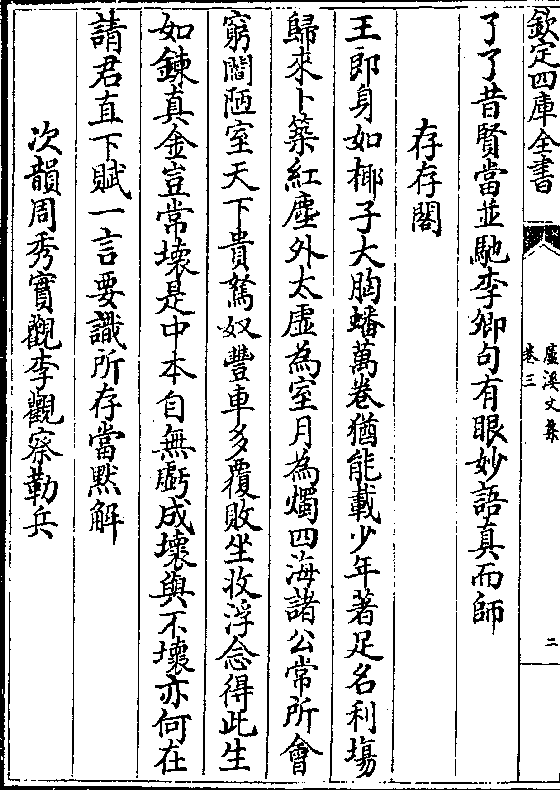 欽定四庫全書
盧溪文集
卷三
二
了了昔賢當並馳李卿句有眼妙語真而師
存存閣
王郎身如椰子大胸蟠萬卷猶能載少年著足名利場
歸來卜築紅塵外太虛為室月為燭四海諸公常所會
窮閻陋室天下貴駑奴豐車多覆敗坐收浮念得此生
如鍊真金豈常壞是中本自無虧成壞與不壞亦何在
請君直下賦一言要識所存當黙解
次韻周秀實觀李觀察勒兵